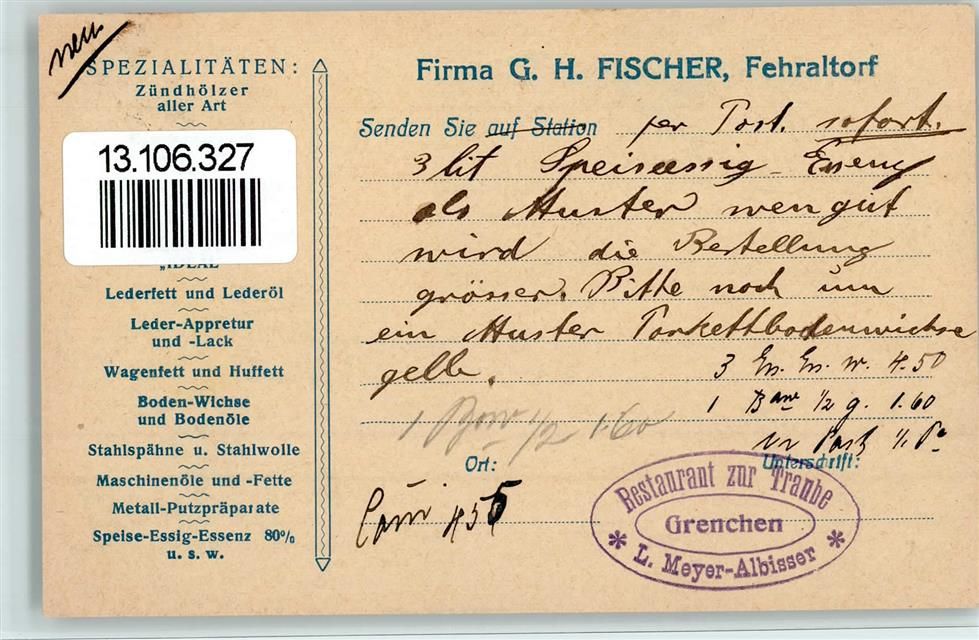 neu
SPEZIALITÄTEN:
Zündhölzer
aller Art
13.106.327
„IDEAL"
Lederfett und Lederöl
Leder-Appretur
und -Lack
Wagenfett und Huffett
Boden-Wichse
und Bodenöle
Stahlspähne u. Stahlwolle
Maschinenöle und -Fette
Metall-Putzpräparate
Speise-Essig-Essenz 80%
u. s. w.
Firma G. H. FISCHER, Fehraltorf
Senden Sie auf Station per Post. sofort.
3 lit Speiseessig-Essenz
als Muster wen gut
wird die Bestellung
grösser. Bitte noch um
ein Muster Parkettbodenwichse
gelb.
3 Es. Es. w. 4.50
1 1/2 g. 1.60
1 1/2 1.60
Ort:
Unterschrift:
455
Restaurant zur Traube
Grenchen
* L. Meyer-Albisser *